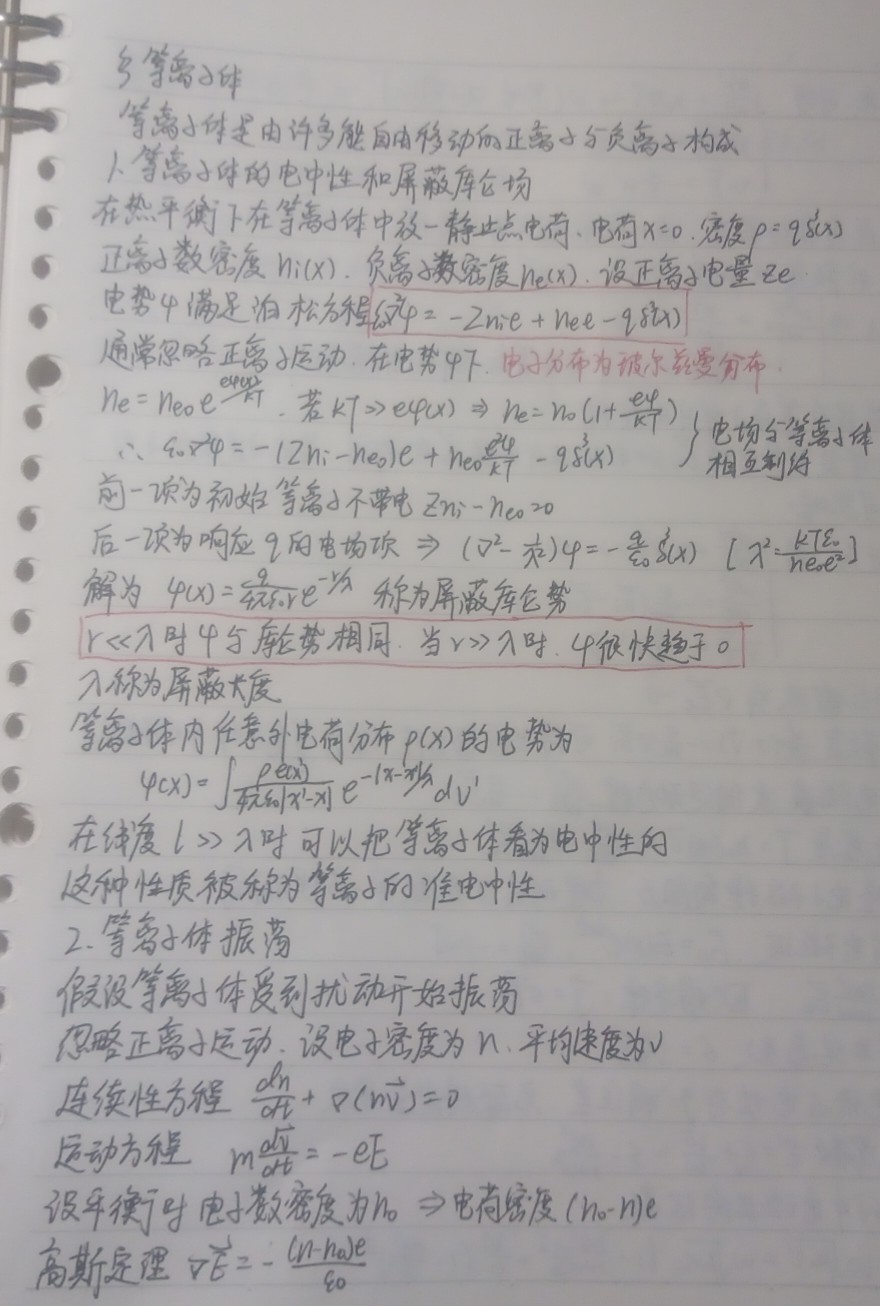 § 等离子体
等离子体是由许多能自由移动的正离子与负离子构成
1、等离子体的电中性和屏蔽库仑场
在热平衡下在等离子体中放一静止点电荷、电荷x=0. 密度ρ=qδ³(x)
正离子数密度 ni(x). 负离子数密度ne(x). 设正离子电量Ze.
电势φ满足泊松方程ε₀∇²φ = -Znie + nee - qδ³(x)
通常忽略正离子运动. 在电势φ下. 电子分布为玻尔兹曼分布.
ne = ne0 e^{eφ(x)/kT}. 若kT≫eφ(x) ⇒ ne=n0(1+eφ/kT)
∴ ε₀∇²φ = -(Zni-ne0)e + ne0 e²φ/kT - qδ³(x) } 电场与等离子体相互制约
前一项为初始等离子不带电 Zni-ne0=0
后一项为响应q的电场项 ⇒ (∇²-1/λ²)φ=-q/ε₀ δ³(x) [λ²=kTε₀/ne0e²]
解为 φ(x)=q/4πε₀r e^{-r/λ} 称为屏蔽库仑势
r≪λ时φ与库仑势相同. 当r≫λ时. φ很快趋于0
λ称为屏蔽长度
等离子体内任意外电荷分布ρ(x)的电势为
φ(x)=∫ρe(x')/4πε₀|x'-x| e^{-|x-x'|/λ}dV'
在线度l≫λ时可以把等离子体看为电中性的
这种性质被称为等离子的准电中性
2、等离子体振荡
假设等离子体受到扰动开始振荡
忽略正离子运动. 设电子密度为n. 平均速度为v
连续性方程 dn/dt + ∇(nv⃗)=0
运动方程 m dv⃗/dt = -eE
设平衡时电子数密度为n₀ ⇒ 电荷密度(n₀-n)e
高斯定理 ∇E⃗ = -(n-n₀)e/ε₀